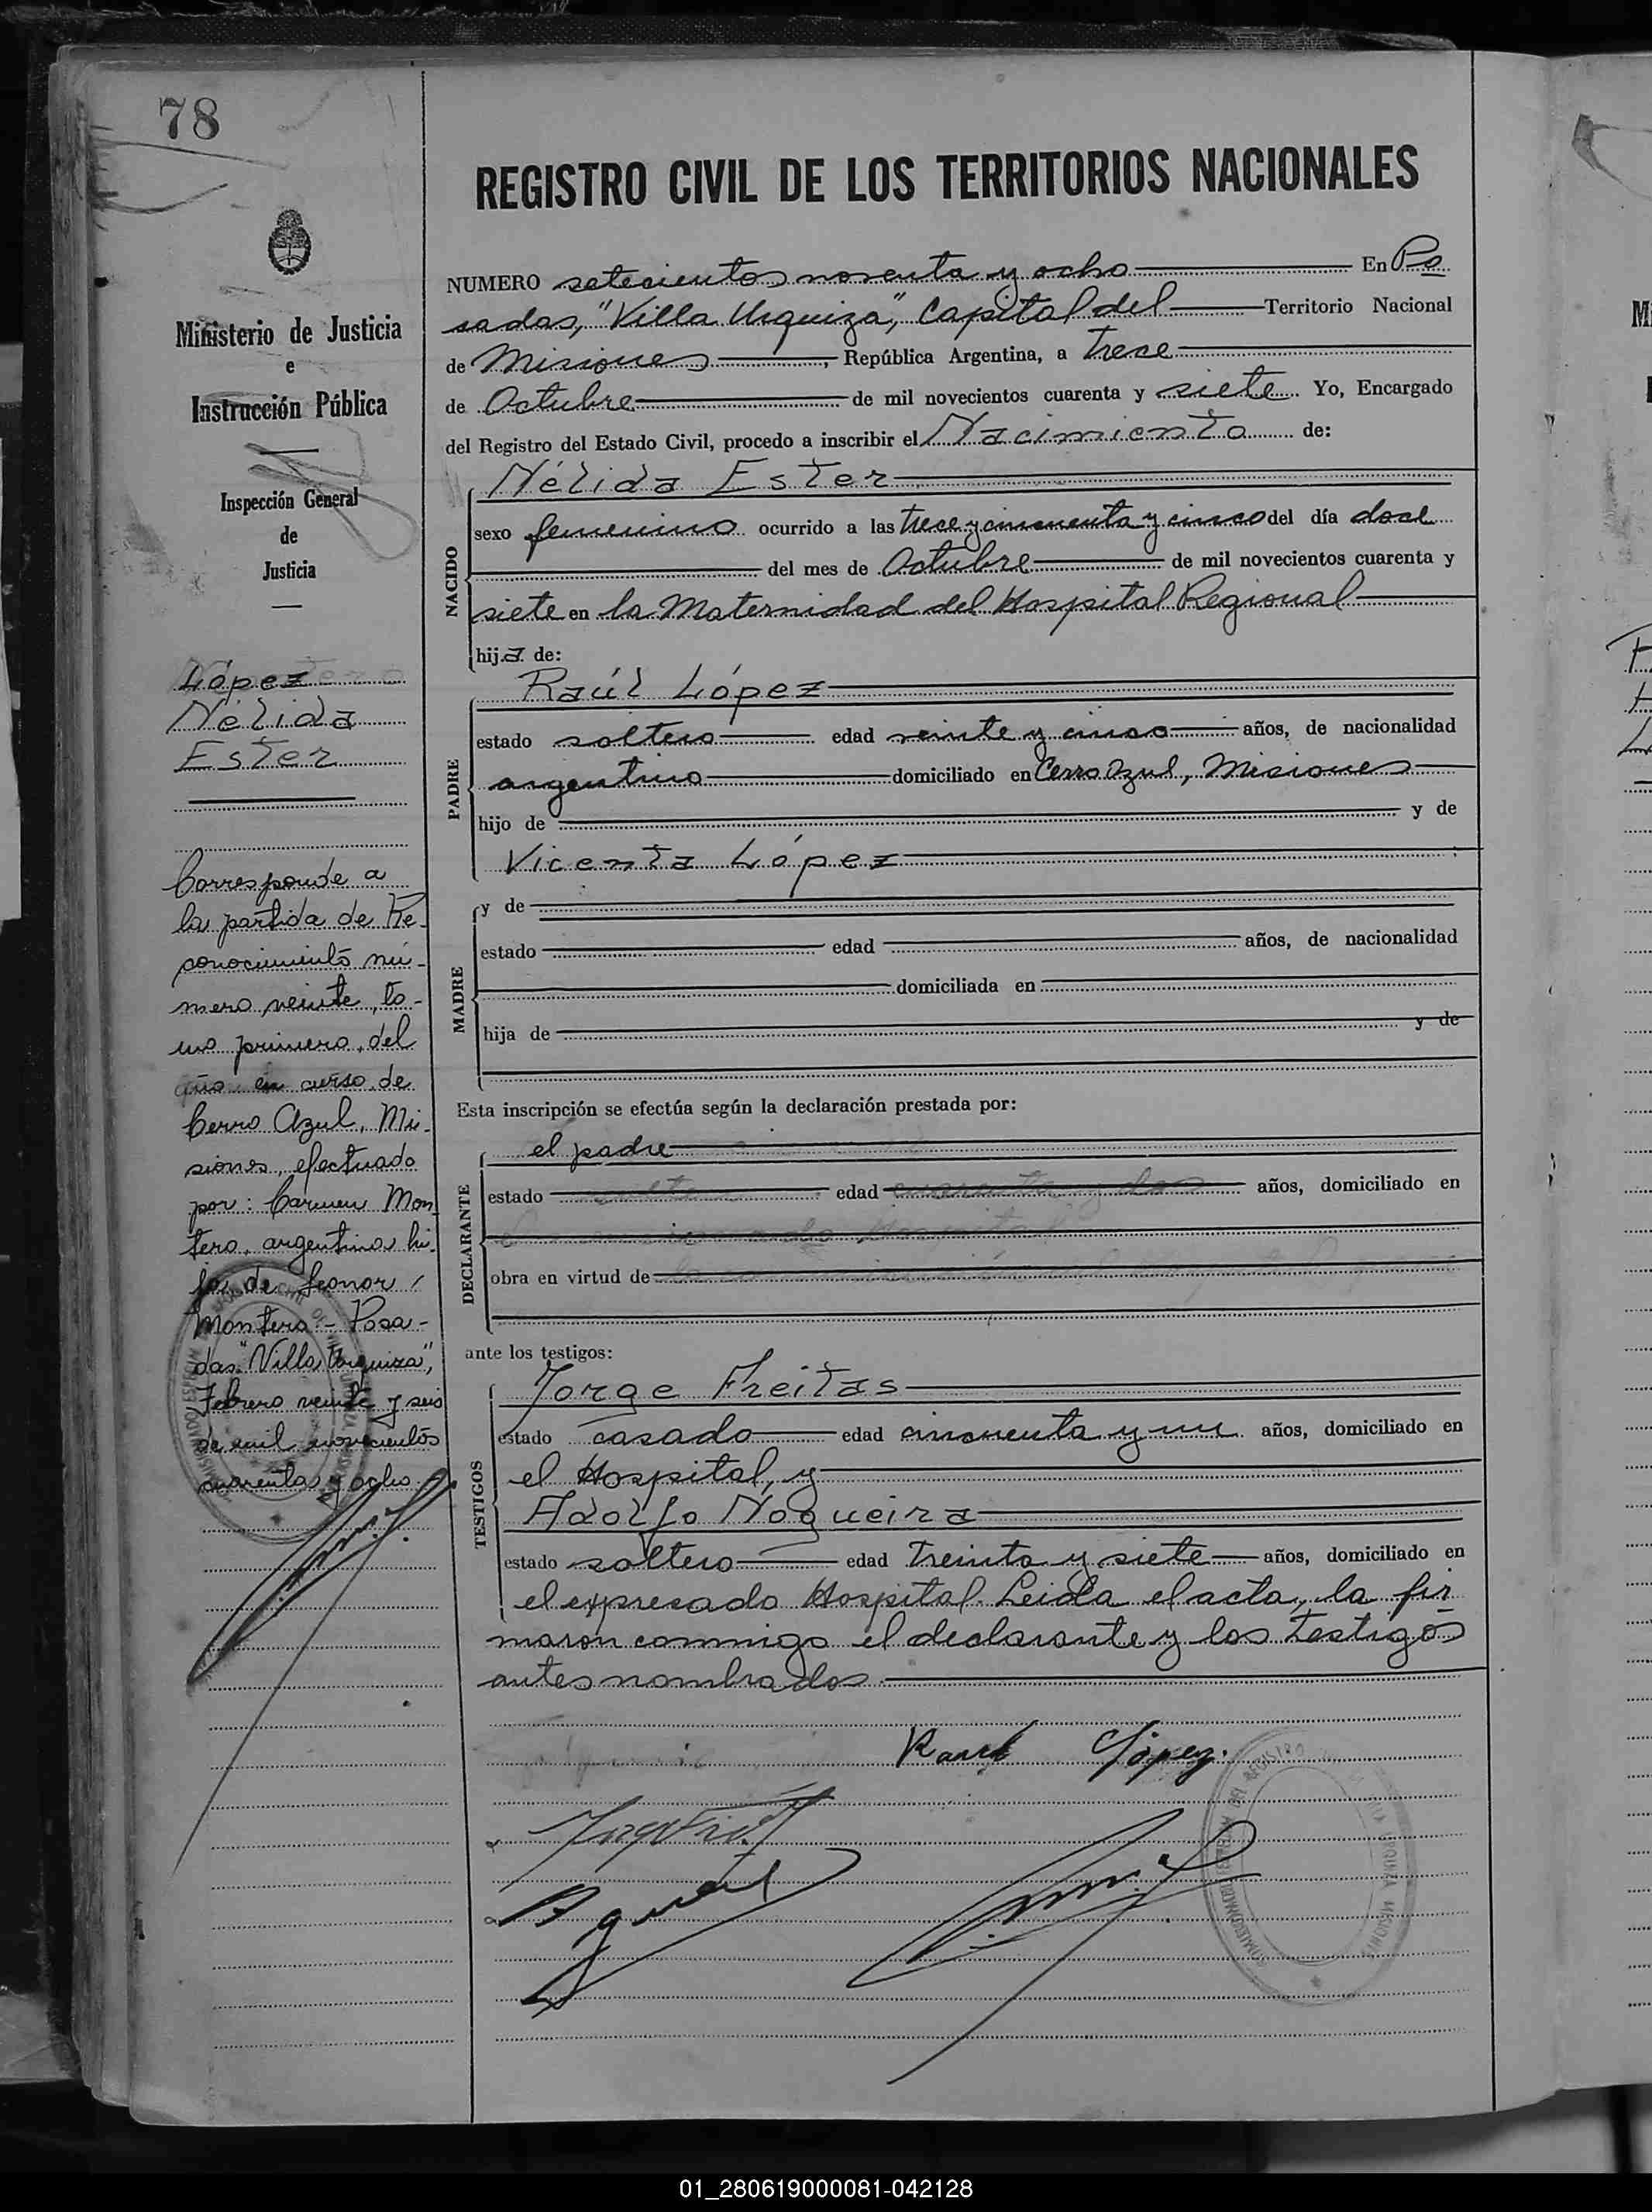 78
Ministerio de Justicia
e
Instrucción Pública
Inspección General
de
Justicia
López
Nélida
Ester
Corresponde a
la partida de Re-
conocimiento nú-
mero veinte, to-
mo primero, del
año en curso de
Cerro Azul, Mi-
siones, efectuado
por: Carmen Mon-
tero, argentina hi-
ja de Leonor
Montero.- Posa-
das "Villa Urquiza",
Febrero veinte y seis
de mil novecientos
cuarenta y ocho.
REGISTRO CIVIL DE LOS TERRITORIOS NACIONALES
NUMERO setecientos noventa y ocho En Po
sadas, "Villa Urquiza", Capital del Territorio Nacional
de Misiones, República Argentina, a Trece
de Octubre de mil novecientos cuarenta y siete Yo, Encargado
del Registro del Estado Civil, procedo a inscribir el Nacimiento de:
NACIDO
Nélida Ester
sexo femenino ocurrido a las trece y cincuenta y cinco del día doce
del mes de Octubre de mil novecientos cuarenta y
siete en la Maternidad del Hospital Regional
hija de:
PADRE
Raúl López
estado soltero edad veinte y cinco años, de nacionalidad
argentino domiciliado en Cerro Azul, Misiones
hijo de y de
Vicenta López
MADRE
y de
estado edad años, de nacionalidad
domiciliada en
hija de y de
Esta inscripción se efectúa según la declaración prestada por:
DECLARANTE
el padre
estado edad años, domiciliado en
obra en virtud de
ante los testigos:
TESTIGOS
Jorge Freitas
estado casado edad cincuenta y un años, domiciliado en
el Hospital, y
Adolfo Nogueira
estado soltero edad Treinta y siete años, domiciliado en
el expresado Hospital. Leida el acta, la fir
maron conmigo el declarante y los testigos
antes nombrados.
Raul López.
01_280619000081-042128